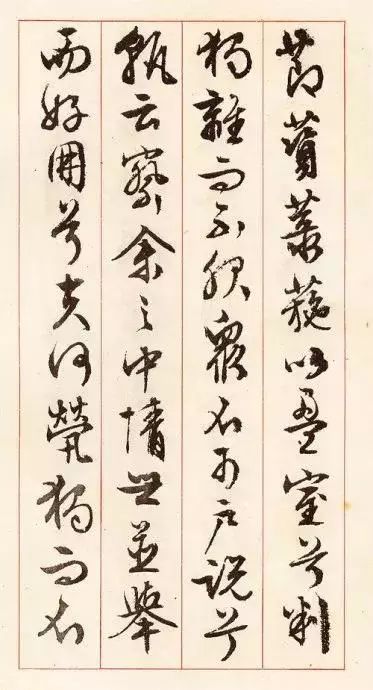 節薋菉葹以盈室兮判
獨離而不服衆不可户説兮
孰云察余之中情世並舉
而好朋兮夫何煢獨而不